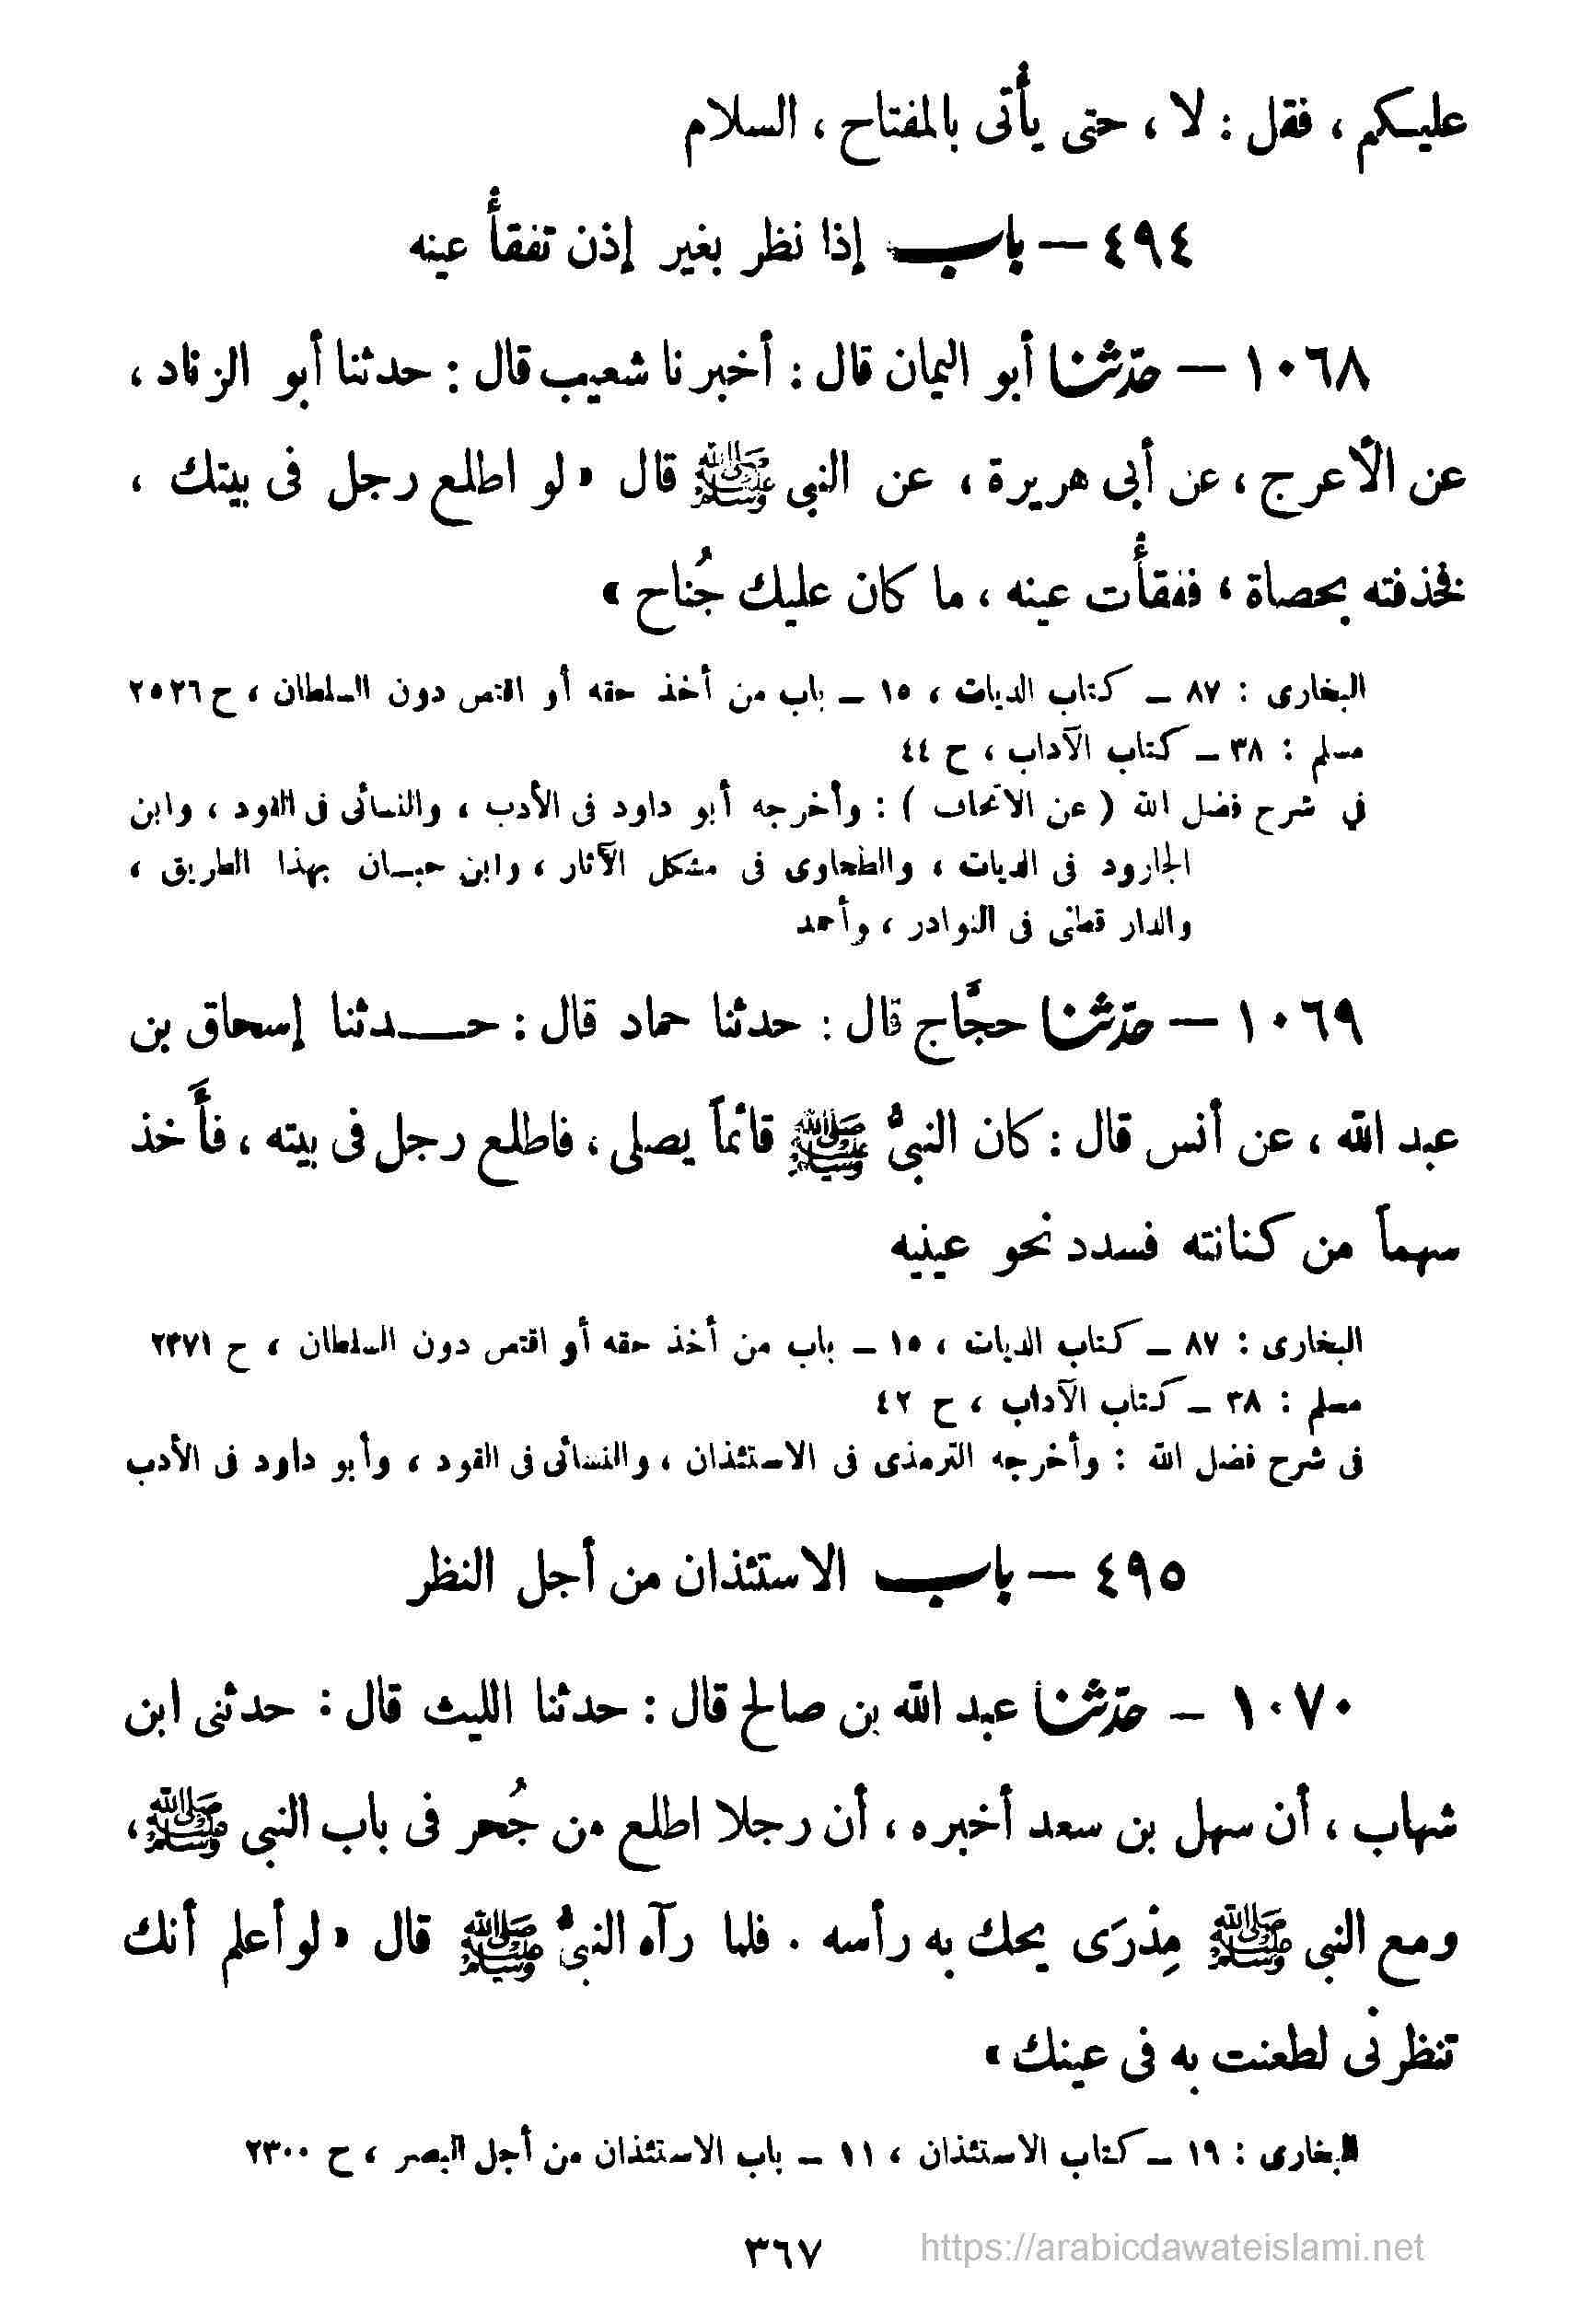 عليكم ، فقل : لا ، حتى يأتى بالمفتاح ، السلام
٤٩٤ — باب إذا نظر بغير إذن تفقأ عينه
١٠٦٨ — حدّثنا أبو اليمان قال : أخبرنا شعيب قال : حدثنا أبو الزناد ،
عن الأعرج ، عن أبى هريرة ، عن النبى ﷺ قال « لو اطلع رجل فى بيتك ،
فخذفته بحصاة ، ففقأت عينه ، ما كان عليك جُناح »
البخارى : ٨٧ — كتاب الديات ، ١٥ — باب من أخذ حقه أو اقتص دون السلطان ، ح ٢٥٢٦
مسلم : ٣٨ — كتاب الآداب ، ح ٤٤
في شرح فضل الله ( عن الاتحاف ) : وأخرجه أبو داود فى الأدب ، والنسائى فى القود ، وابن
الجارود فى الديات ، والطحاوى فى مشكل الآثار ، وابن حبان بهذا الطريق ،
والدار قطنى فى النوادر ، وأحمد
١٠٦٩ — حدّثنا حجَّاج قال : حدثنا حماد قال : حدثنا إسحاق بن
عبد الله ، عن أنس قال : كان النبىُّ ﷺ قائماً يصلى ، فاطلع رجل فى بيته ، فأَخذ
سهماً من كنانته فسدد نحو عينيه
البخارى : ٨٧ — كتاب الديات ، ١٥ — باب من أخذ حقه أو اقتص دون السلطان ، ح ٢٣٧١
مسلم : ٣٨ — كتاب الآداب ، ح ٤٢
فى شرح فضل الله : وأخرجه الترمذى فى الاستئذان ، والنسائى فى القود ، وأبو داود فى الأدب
٤٩٥ — باب الاستئذان من أجل النظر
١٠٧٠ — حدّثنا عبد الله بن صالح قال : حدثنا الليث قال : حدثنى ابن
شهاب ، أن سهل بن سعد أخبره ، أن رجلا اطلع من جُحر فى باب النبى ﷺ ،
ومع النبى ﷺ مِذْرَى يحك به رأسه . فلما رآه النبىُّ ﷺ قال « لو أعلم أنك
تنظرنى لطعنت به فى عينك »
البخارى : ١٩ — كتاب الاستئذان ، ١١ — باب الاستئذان من أجل البصر ، ح ٢٣٠٠
٣٦٧
https://arabicdawateislami.net